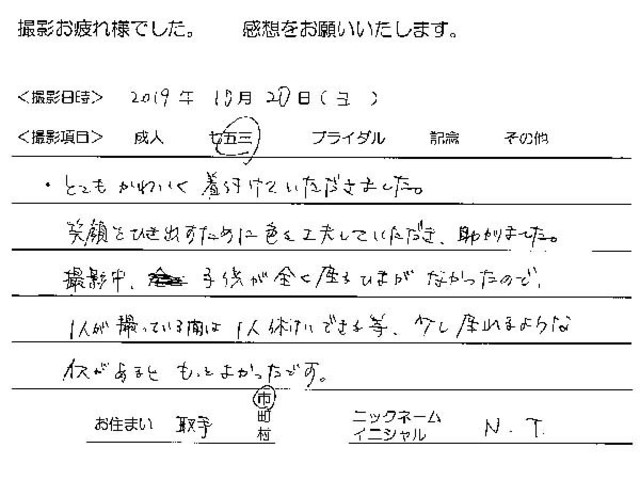 撮影お疲れ様でした。 感想をお願いいたします。
<撮影日時> 2019年 10月20日(日)
<撮影項目> 成人 七五三 ブライダル 記念 その他
・とてもかわいく着付けていただきました。
笑顔をひき出すために色々工夫していただき、助かりました。
撮影中、子供が全く座るひまがなかったので、
1人が撮っている間は1人休けいできる等、少し座れるような
イスがあると もっとよかったです。
お住まい 取手 市町村 ニックネーム イニシャル N.T.